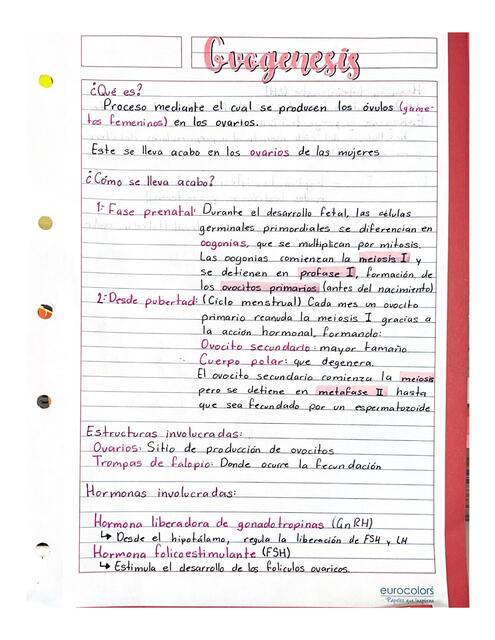 Ovogenesis
¿Qué es?
Proceso mediante el cual se producen los óvulos (game-
tos femeninos) en los ovarios.
Este se lleva acabo en los ovarios de las mujeres
¿Cómo se lleva acabo?
1: Fase prenatal: Durante el desarrollo fetal, las células
germinales primordiales se diferencian en
oogonias, que se multiplican por mitosis.
Las oogonias comienzan la meiosis I y
se detienen en profase I, formación de
los ovocitos primarios (antes del nacimiento)
2: Desde pubertad: (Ciclo menstrual) Cada mes un ovocito
primario reanuda la meiosis I gracias a
la acción hormonal, formando:
Ovocito secundario: mayor tamaño
Cuerpo polar: que degenera.
El ovocito secundario comienza la meiosis
pero se detiene en metafase II hasta
que sea fecundado por un espermatozoide
Estructuras involucradas:
Ovarios: Sitio de producción de ovocitos
Trompas de falopio: Donde ocurre la fecundación
Hormonas involucradas:
Hormona liberadora de gonadotropinas (GnRH)
↳ Desde el hipotálamo, regula la liberación de FSH y LH
Hormona folicoestimulante (FSH)
↳ Estimula el desarrollo de los foliculos ovaricos.
eurocolors
Papeles que inspiran